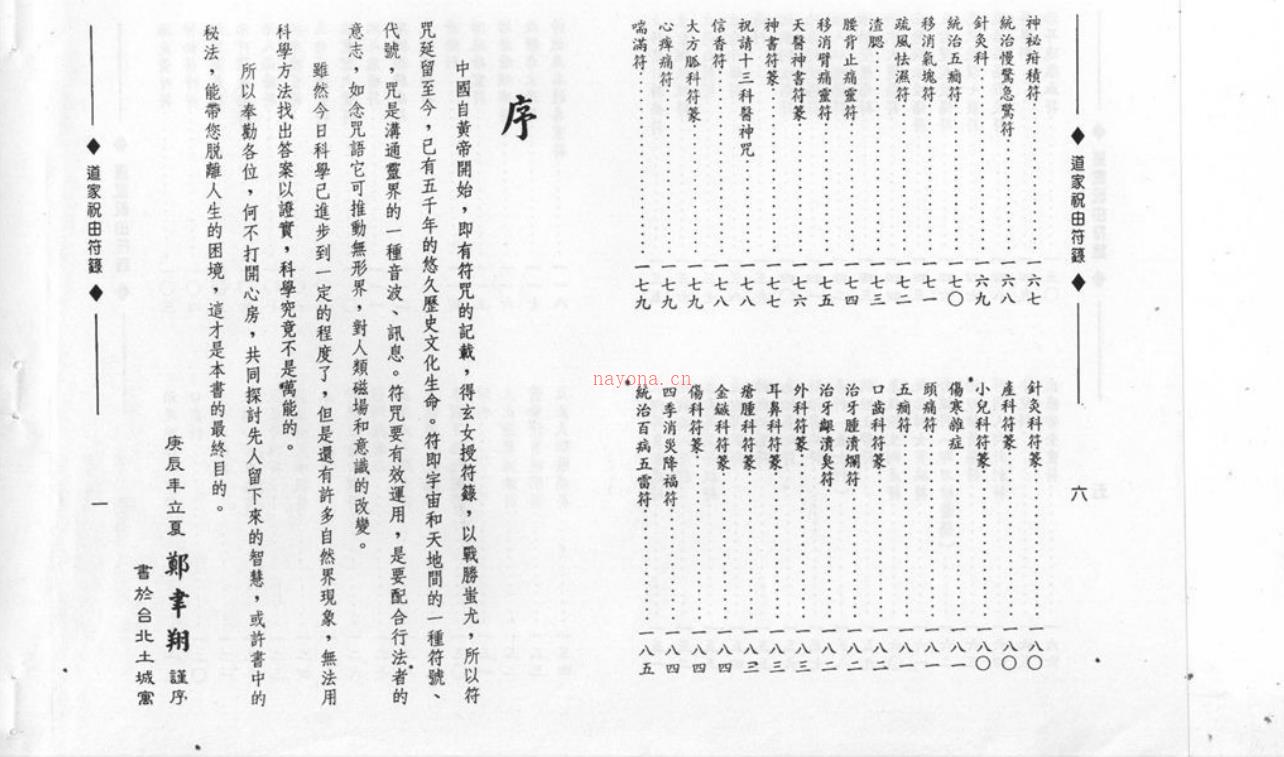 ◆ 道家祝由符籙 ◆
六
神祕疳積符 一六七
統治慢驚急驚符 一六八
針灸科 一六九
統治五癇符 一七〇
移消氣塊符 一七一
疏風怯濕符 一七二
渣腮 一七三
腰背止痛靈符 一七四
移消臂痛靈符 一七五
天醫神書符篆 一七六
神書符篆 一七七
祝請十三科醫神咒 一七八
信香符 一七八
大方脈科符篆 一七九
心痺痛符 一七九
喘滿符 一七九
針灸科符篆 一八〇
產科符篆 一八〇
小兒科符篆 一八〇
傷寒雜症 一八一
頭痛符 一八一
五癇符 一八一
口齒科符篆 一八二
治牙腫潰爛符 一八二
治牙齦潰臭符 一八二
外科符篆 一八三
耳鼻科符篆 一八三
瘡腫科符篆 一八三
金鏃科符篆 一八四
傷科符篆 一八四
四季消災降福符 一八四
統治百病五雷符 一八五
nayona.cn
序
中國自黃帝開始，即有符咒的記載，得玄女授符籙，以戰勝蚩尤，所以符
咒延留至今，已有五千年的悠久歷史文化生命。符即宇宙和天地間的一種符號、
代號，咒是溝通靈界的一種音波、訊息。符咒要有效運用，是要配合行法者的
意志，如念咒語它可推動無形界，對人類磁場和意識的改變。
雖然今日科學已進步到一定的程度了，但是還有許多自然界現象，無法用
科學方法找出答案以證實，科學究竟不是萬能的。
所以奉勸各位，何不打開心房，共同探討先人留下來的智慧，或許書中的
秘法，能帶您脫離人生的困境，這才是本書的最終目的。
庚辰年立夏 鄭聿翔 謹序
書於台北土城寓
◆ 道家祝由符籙 ◆
一